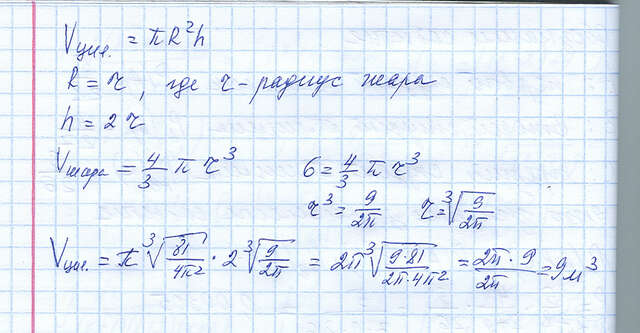 Vцил. = πR²h
R = r, где r - радиус шара
h = 2r
Vшара = 4/3 π r³   6 = 4/3 π r³
r³ = 9/2π   r = ∛(9/2π)
Vцил. = π ∛(81/4π²) · 2 ∛(9/2π) = 2π ∛(9·81/2π·4π²) = 2π·9/2π = 9м³